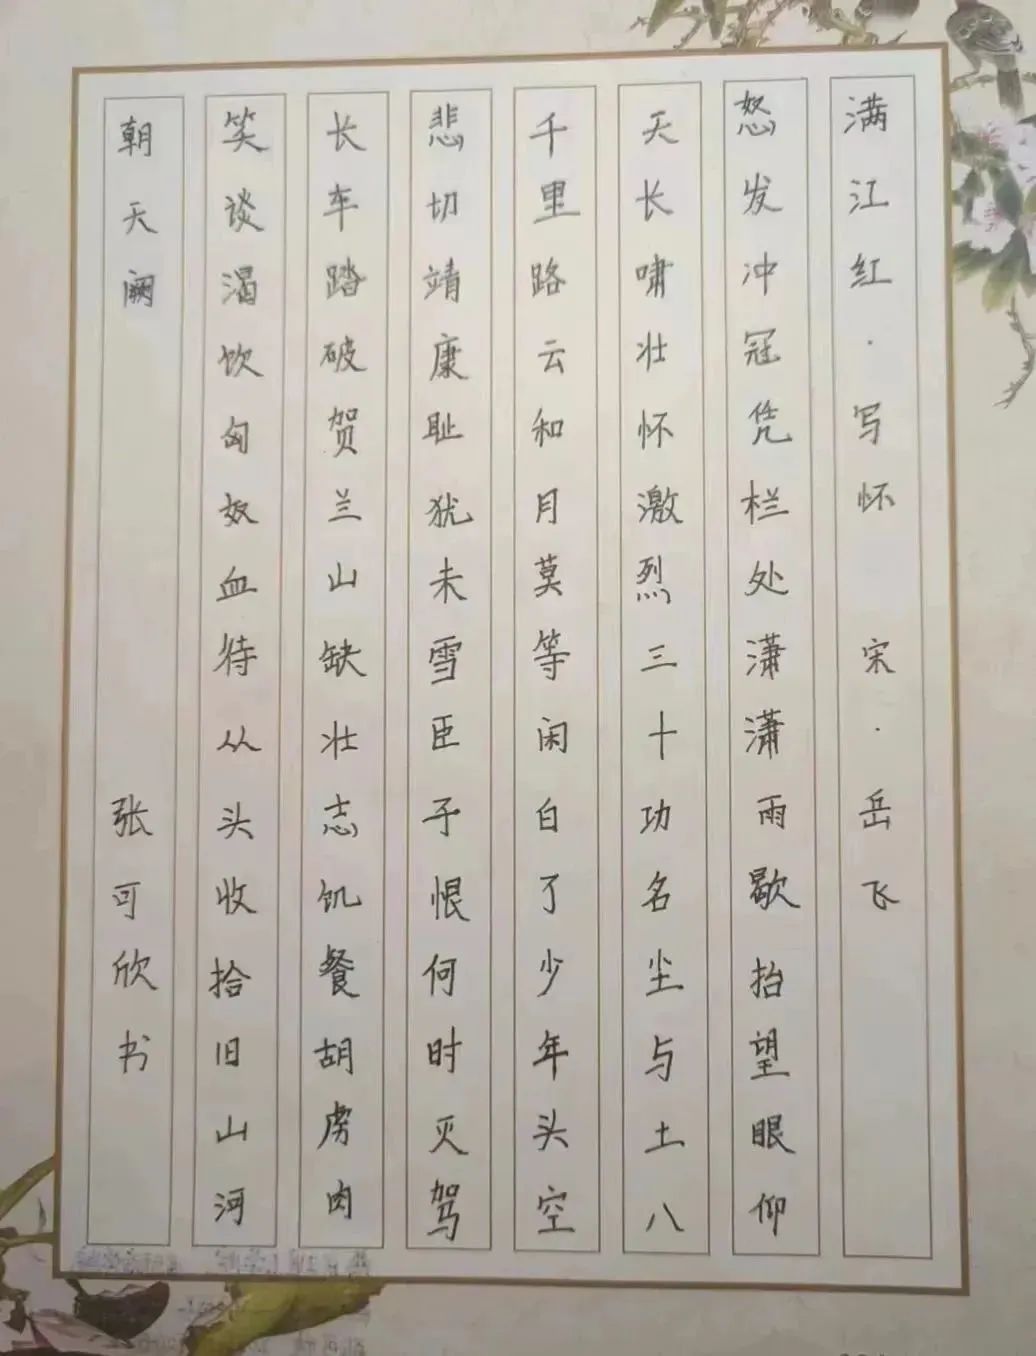 满江红·写怀 宋·岳飞
怒发冲冠凭栏处潇潇雨歇抬望眼仰
天长啸壮怀激烈三十功名尘与土八
千里路云和月莫等闲白了少年头空
悲切靖康耻犹未雪臣子恨何时灭驾
长车踏破贺兰山缺壮志饥餐胡虏肉
笑谈渴饮匈奴血待从头收拾旧山河
朝天阙 张可欣书